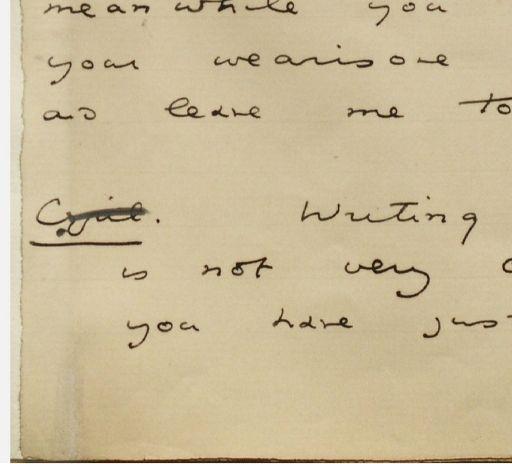 mean while you
your wearisome
and leave me to
Cyril. Writing
is not very
you have jus